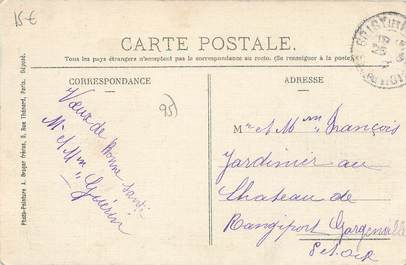 15€
CARTE POSTALE.
Tous les pays étrangers n'acceptent pas la correspondance au recto. (Se renseigner à la poste).
CORRESPONDANCE
ADRESSE
95)
Vœux de Bonne Santé
Mr et Mme
Guérin
Mr et Mme François
Jardinier au
Chateau de
Rangiport Gargenville
S et oise
Photo-Peinture A. Breger Frères, 9, Rue Thénard, Paris. Déposé.